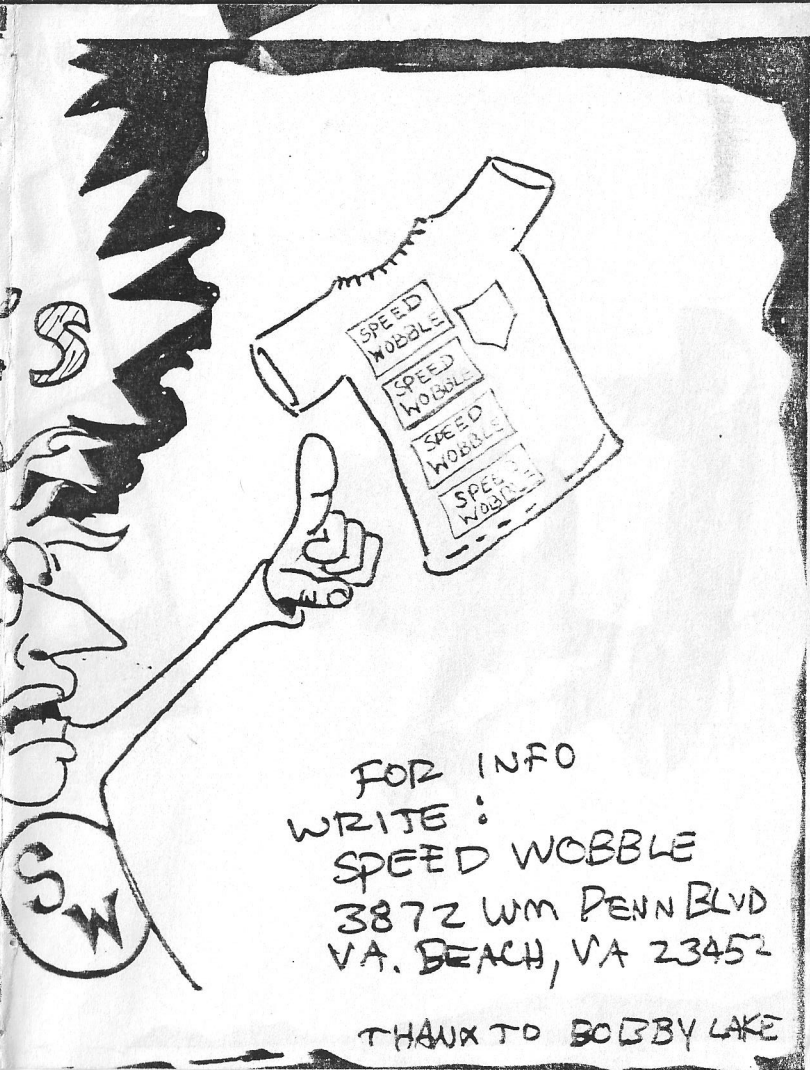 S
SPEED
WOBBLE
SPEED
WOBBLE
SPEED
WOBBLE
SPEED
WOBBLE
SW
FOR INFO
WRITE :
SPEED WOBBLE
3872 WM PENN BLVD
VA. BEACH, VA 23452
THANX TO BOBBY LAKE